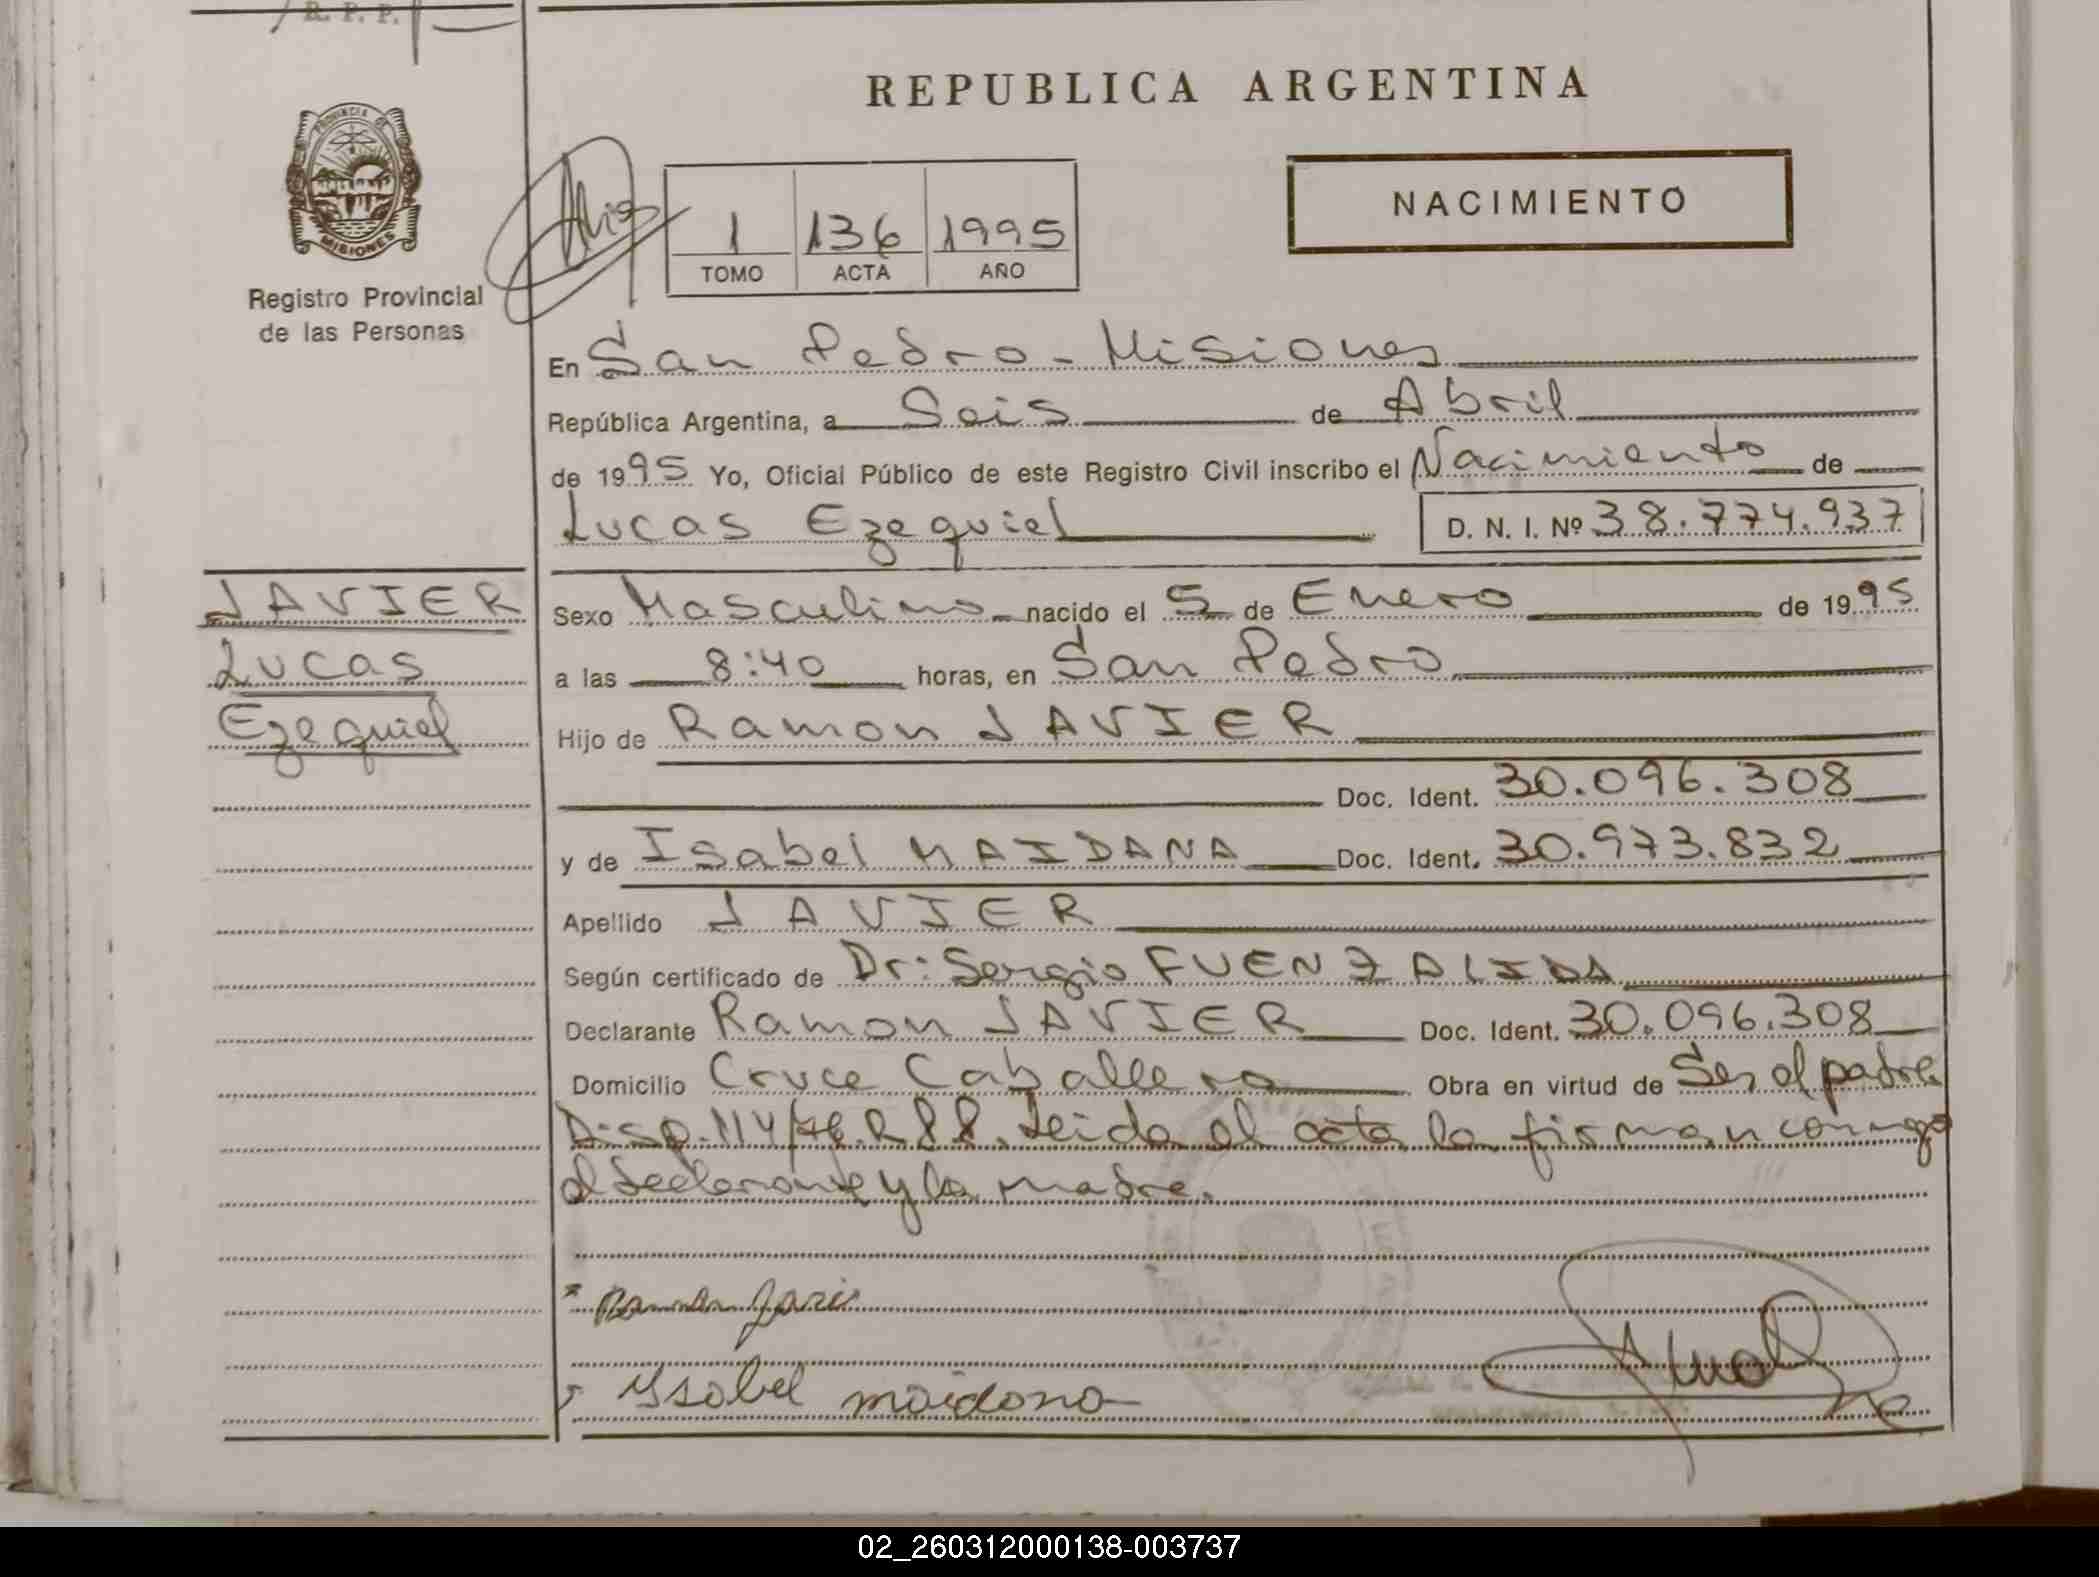 R. P. P.
REPUBLICA ARGENTINA
PROVINCIA DE
MISIONES
NACIMIENTO
1 136 1995
TOMO ACTA AÑO
Registro Provincial
de las Personas
En San Pedro - Misiones
República Argentina, a Seis de Abril
de 1995 Yo, Oficial Público de este Registro Civil inscribo el Nacimiento de
Lucas Ezequiel D. N. I. Nº 38.774.937
JAVIER
Lucas
Ezequiel
Sexo Masculino nacido el 5 de Enero de 1995
a las 8:40 horas, en San Pedro
Hijo de Ramon JAVIER
Doc. Ident. 30.096.308
y de Isabel MAIDANA Doc. Ident. 30.973.832
Apellido JAVIER
Según certificado de Dr: Sergio FUENZALIDA
Declarante Ramon JAVIER Doc. Ident. 30.096.308
Domicilio Cruce Caballero Obra en virtud de Ser el padre
Disp. 114/76.R88. Leida el acta la firman conmigo
el declarante y la madre.
Ysabel maidana
02_260312000138-003737